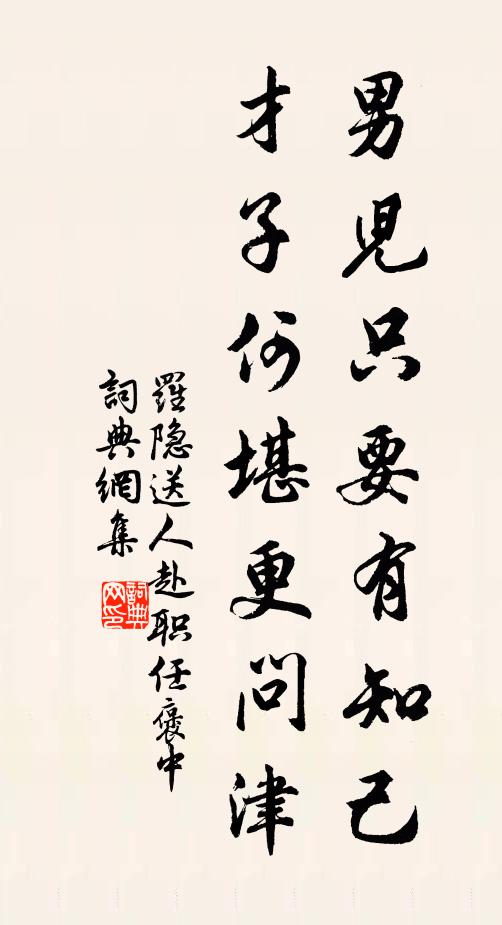 男児只要有知己
才子何堪更問津
羅隐送人赴职任褒中
詞典網集
詞典网印